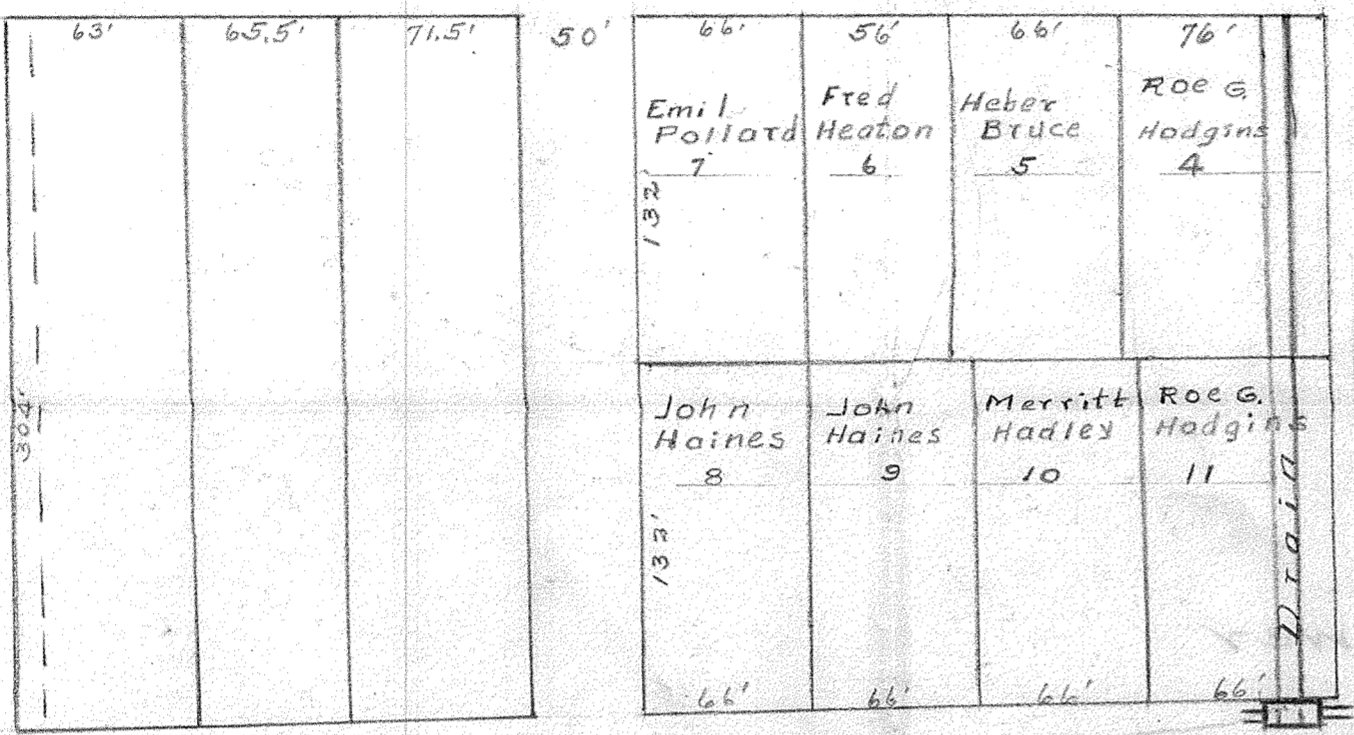 63' 65.5' 71.5' 50' 66' 56' 66' 76'
Emil
Pollard
7
Fred
Heaton
6
Heber
Bruce
5
Roe G.
Hodgins
4
132
304'
John
Haines
8
John
Haines
9
Merritt
Hadley
10
Roe G.
Hodgins
11
133'
Drain
66' 66' 66' 66'